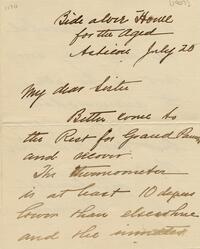 Bide a wee Home
for the Aged
July 20
My dear Sister
Better come to
the Rest for Grand
and
The thermometer
is at least 10 degrees
lower than elsewhere
and the